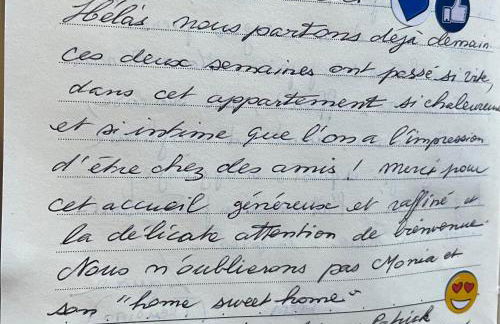 Hélas nous partons déjà demain
ces deux semaines ont passé si vite,
dans cet appartement si chaleureux
et si intime que l'on a l'impression
d'être chez des amis ! merci pour
cet accueil généreux et raffiné, et
la délicate attention de bienvenue.
Nous n'oublierons pas Monia et
son "home sweet home"
Patrick